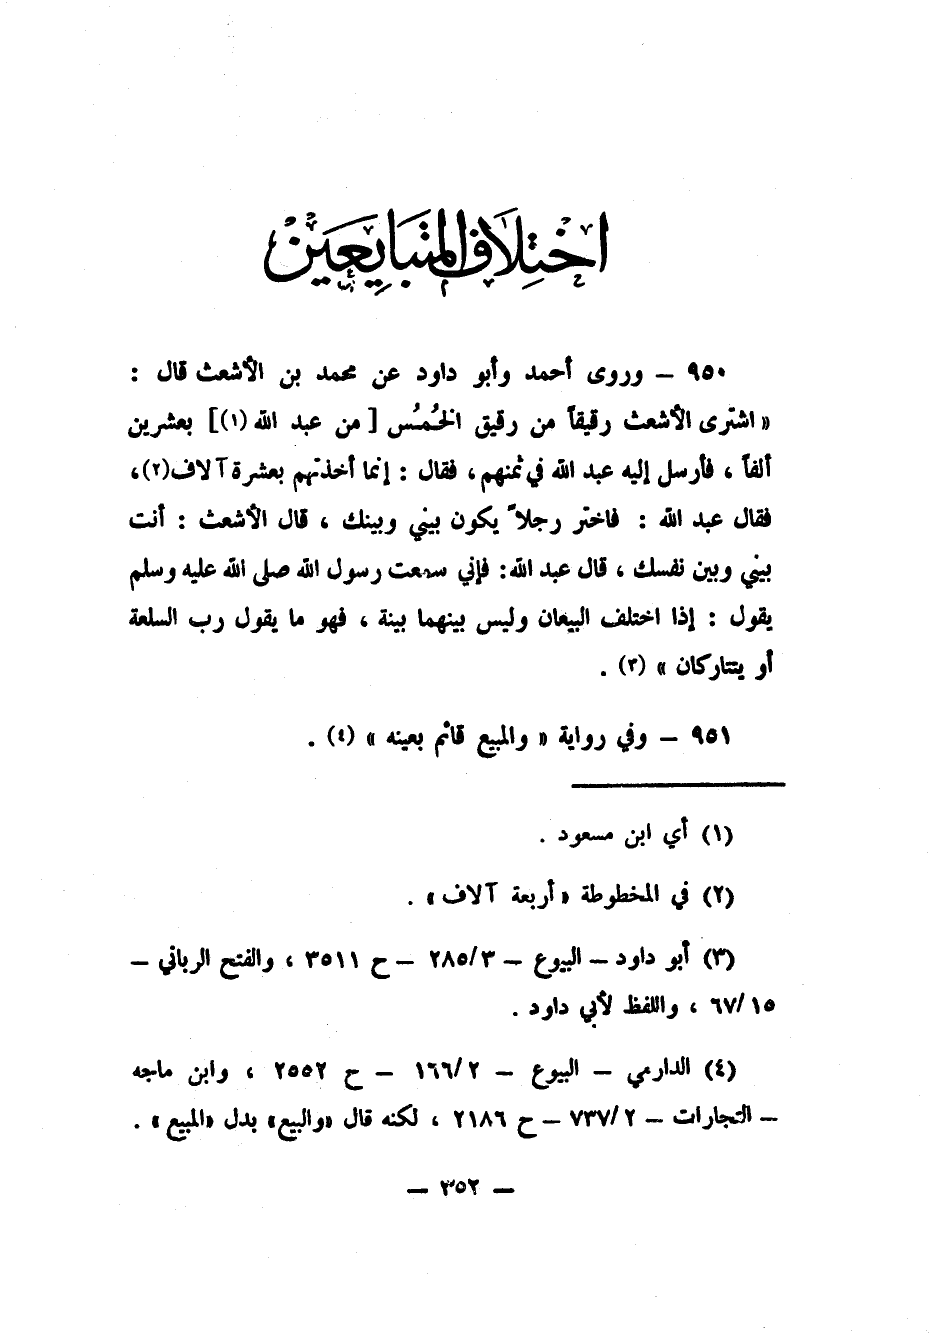 اختلاف المتبايعين
٩٥٠ – وروى أحمد وأبو داود عن محمد بن الأشعث قال :
« اشترى الأشعث رقيقاً من رقيق الخُمُس [ من عبد الله (١)] بعشرين
ألفاً ، فأرسل إليه عبد الله في ثمنهم ، فقال : إنما أخذتهم بعشرة آلاف(٢)،
فقال عبد الله : فاختر رجلاً يكون بيني وبينك ، قال الأشعث : أنت
بيني وبين نفسك ، قال عبد الله: فإني سمعت رسول الله صلى الله عليه وسلم
يقول : إذا اختلف البيعان وليس بينهما بينة ، فهو ما يقول رب السلعة
أو يتتاركان » (٣) .
٩٥١ – وفي رواية « والمبيع قائم بعينه » (٤) .
(١) أي ابن مسعود .
(٢) في المخطوطة «أربعة آلاف» .
(٣) أبو داود – البيوع – ٢٨٥/٣ – ح ٣٥١١ ، والفتح الرباني –
٦٧/١٥ ، واللفظ لأبي داود .
(٤) الدارمي – البيوع – ١٦٦/٢ – ح ٢٥٥٢ ، وابن ماجه
– التجارات – ٧٣٧/٢ – ح ٢١٨٦ ، لكنه قال «والبيع» بدل «المبيع» .
– ٣٥٢ –